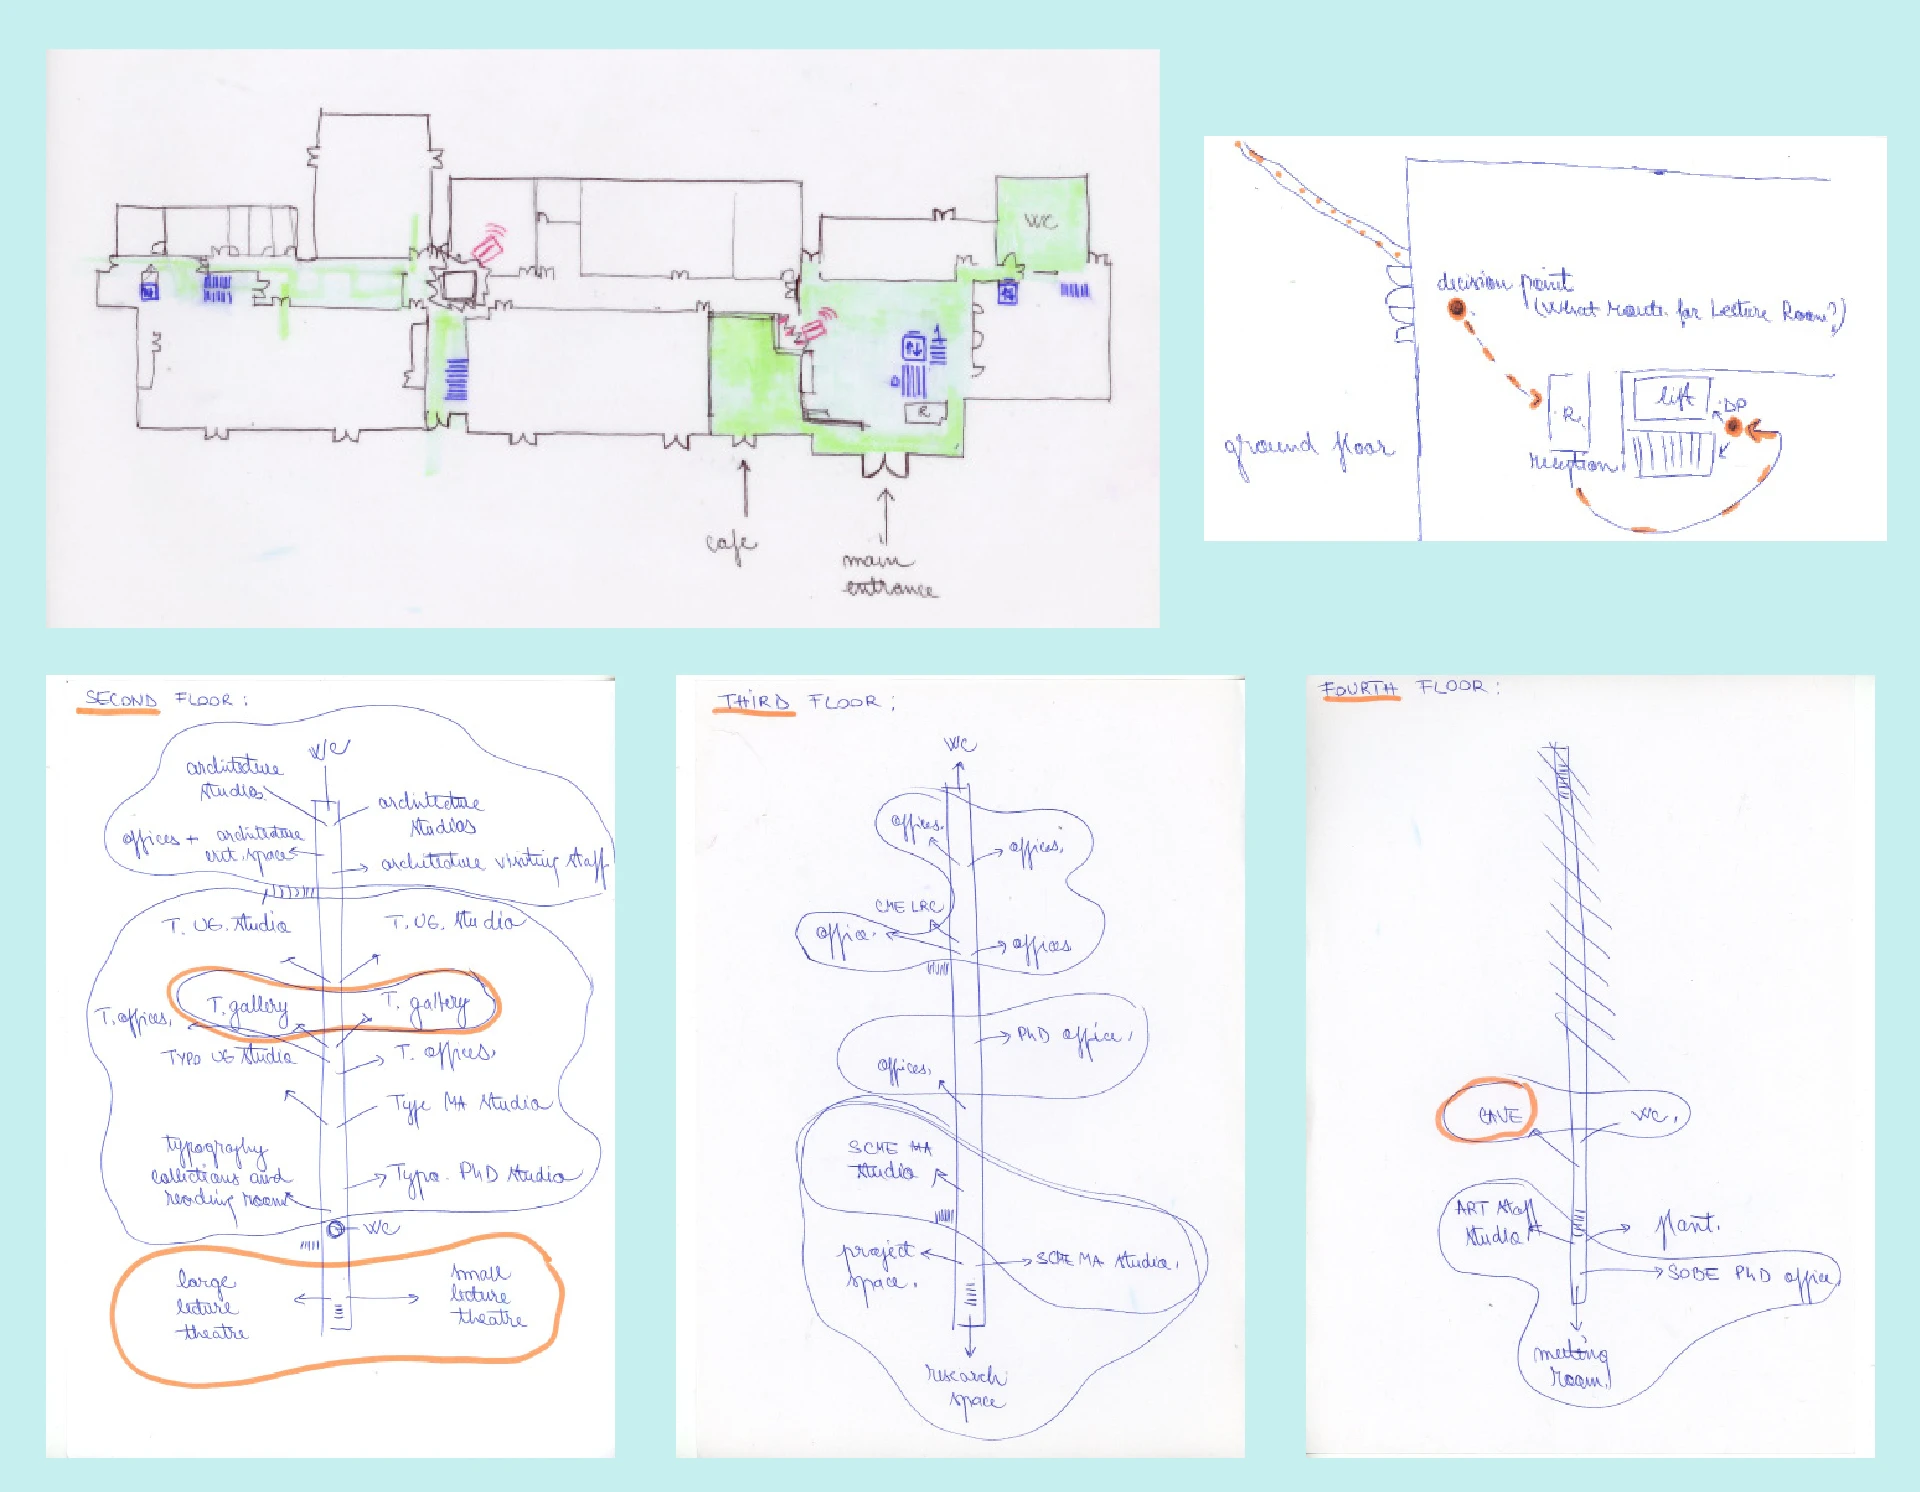 WC
R
cafe
main
entrance
decision point
(What route for Lecture Room?)
R
lift
DP
reception
ground floor
SECOND FLOOR:
WC
architecture
studios
architecture
studios
offices + architecture
crit. space
architecture visiting staff
T. UG. Studio
T. UG. Studio
T. gallery
T. gallery
T. offices,
Typo UG Studio
T. offices,
Type MA Studio
typography
collections and
reading room
Typo. PhD Studio
WC
large
lecture
theatre
small
lecture
theatre
THIRD FLOOR:
WC
offices.
offices,
CME LRC
office.
offices
PhD office,
offices,
SCME MA
studio
project
space.
SCME MA studio,
research
space
FOURTH FLOOR:
CAVE
WC.
ART Staff
studio
plant.
SOBE PhD office,
meeting
room,